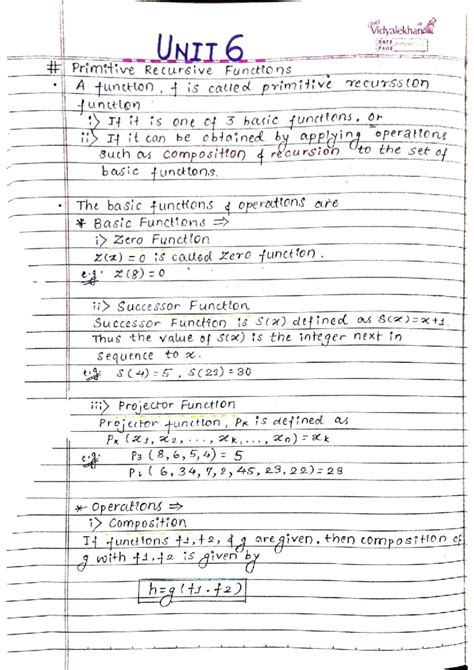 Vidyalekhan
DATE
PAGE
UNIT 6
# Primitive Recursive Functions
• A function, f is called primitive recurssion
function
i) If it is one of 3 basic functions, or
ii) If it can be obtained by applying operations
such as composition & recursion to the set of
basic functions.
• The basic functions & operations are
* Basic Functions ⇒
i) Zero Function
Z(x) = 0 is called zero function.
e.g: Z(8) = 0
ii) Successor Function
Successor Function is S(x) defined as S(x)=x+1.
Thus the value of S(x) is the integer next in
sequence to x.
e.g: S(4) = 5, S(29) = 30
iii) Projector Function
Projector function, Pk is defined as
Pk (x1, x2, ..., xk, ..., xn) = xk
e.g: P3 (8, 6, 5, 4) = 5
(6, 34, 7, 2, 45, 23, 22) =
* Operations ⇒
i) Composition
If functions f1, f2, & g are given, then composition of
g with f1, f2 is given by
h = g(f1, f2)